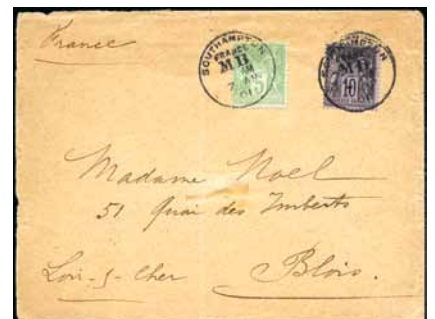 France
SOUTHAMPTON
FRANCE
M B
5
SOUTHAMPTON
M B
10
Madame Noel
51 Quai des Imberts
Loir-&-Cher
Blois.